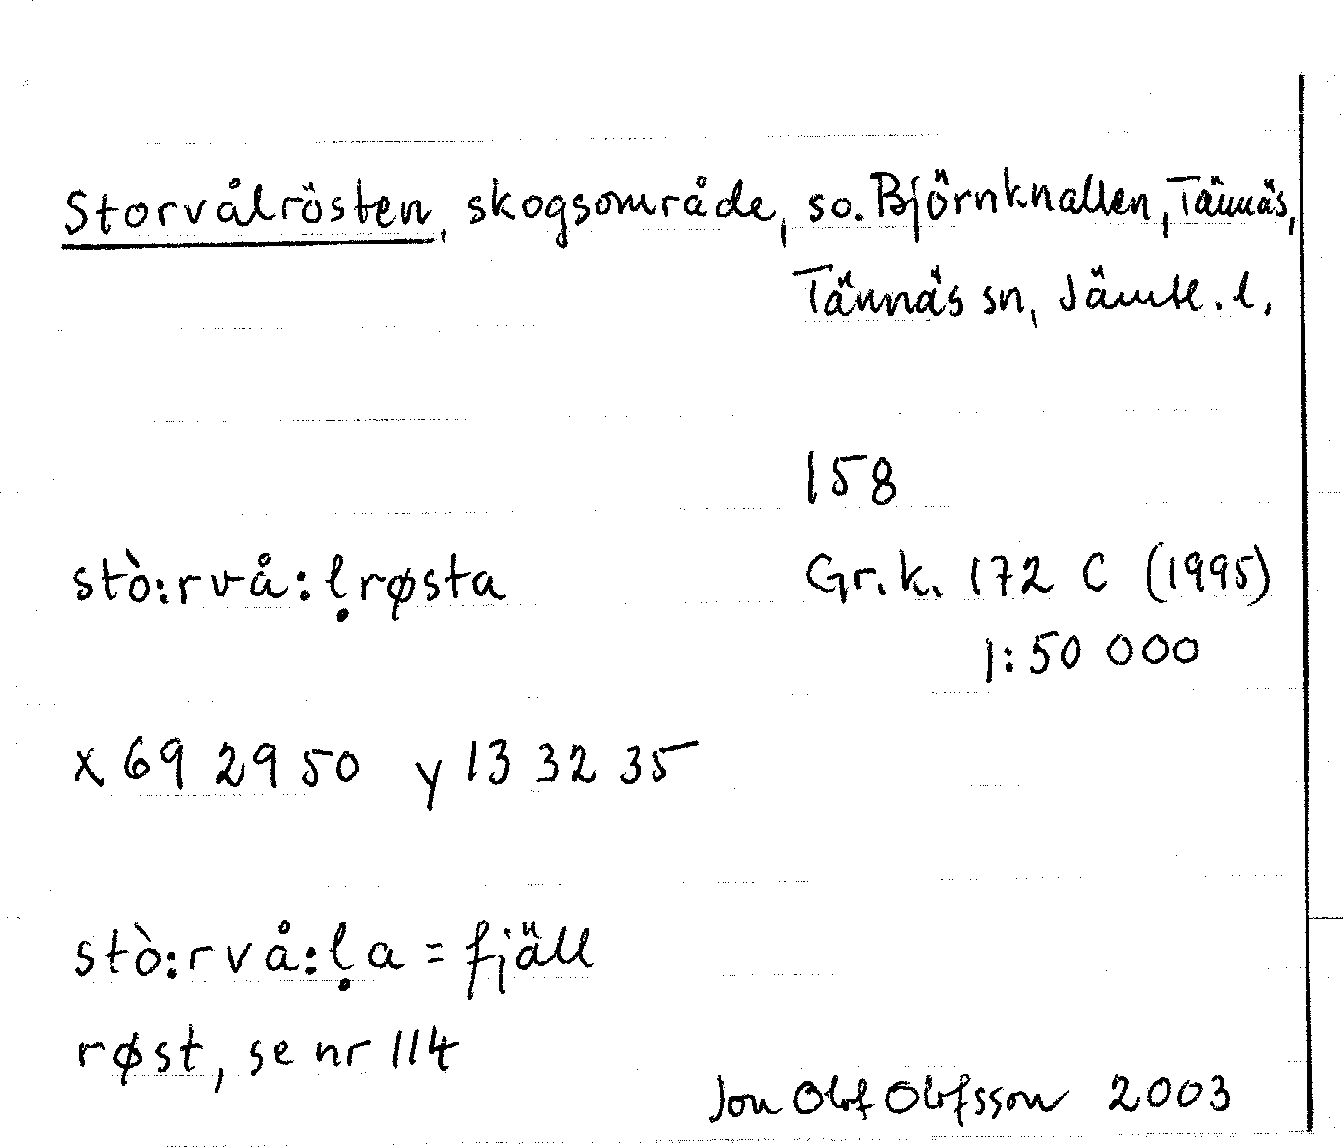 Storvålrösten, skogsområde, so. Björnknallen, Tännäs,
Tännäs sn, Jämtl. l.
158
stò:rvå:ḷrøsta Gr.k. 172 C (1995)
1:50 000
x 69 29 50 y 13 32 35
stò:rvå:ḷa = fjäll
røst, se nr 114
Jon Olof Olofsson 2003